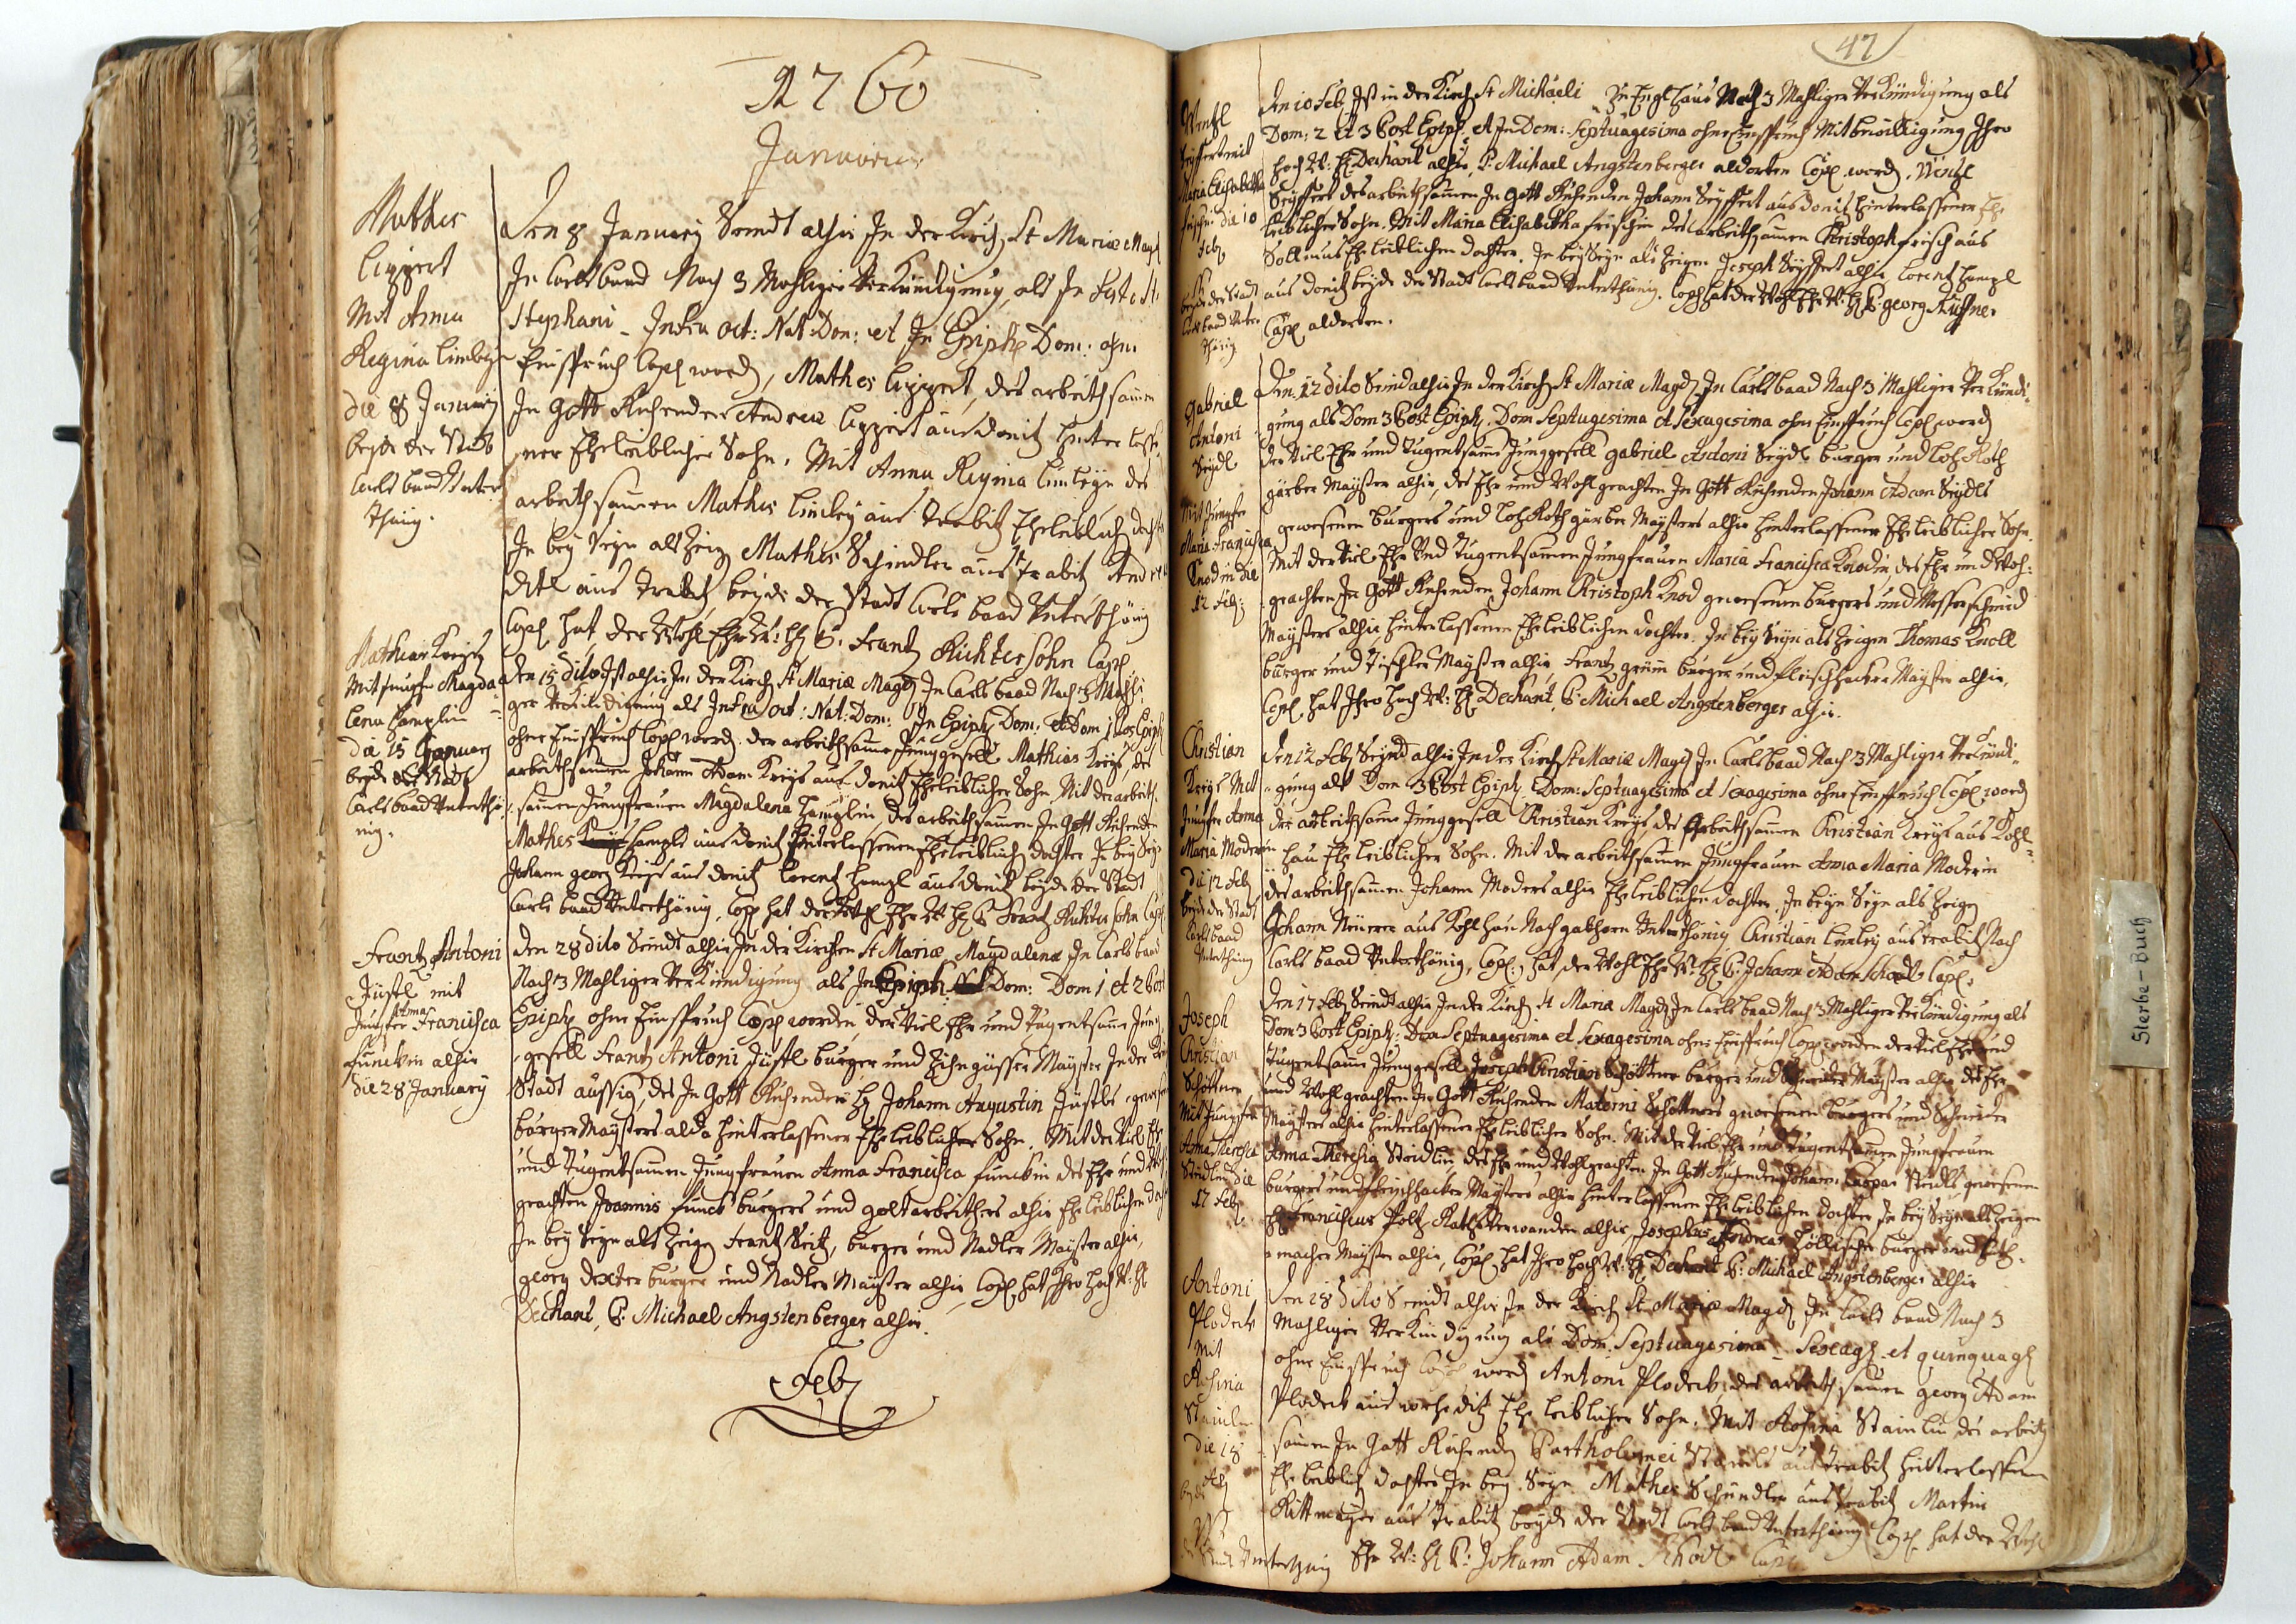 1760
Januarius
Mathes
Lippert
Mit Anna
Regina Limley
die 8 January
beyde der Stadt
Carlsbaad Unter
thänig.
Den 8 January Seindt alhir In der Kirch St Mariæ Magd
In Carlsbaad Nach 3 Mahliger Verkündigung, als In Festo St.
Stephani - Infra Oct: Nat: Dom: et In Epiph Dom: ohne
Einspruch Cop word, Mathes Lippert, des arbeithsamen
In Gott Ruhenden Andrea Lippert aus Donitz hinterlasse
ner Eheleiblicher Sohn. Mit Anna Regina Limleyn des
arbeithsamen Mathes Limley aus Trabitz Eheleiblich dochter
In bey Seyn als Zeig Mathes Schindler aus Trabitz
aus Trabitz beyde der Stadt Carlsbaad Unterthänig
Cop hat der Wohl Ehrw: H P. Frantz Richter Sohn Capl
Mathias Kreys
Mit Jungfr Magda
lena Hamplin
die 15 January
beyde der Stadt
Carlsbaad Unterthä
nig.
Den 15 dito Ist alhir In der Kirch St Mariæ Magd In Carlsbaad Nach 3 Mahli
ger Verkündigung als Infra Oct: Nat: Dom: In Epiph Dom: et Dom 1 Post Epiph
ohne Einspruch Cop word. der arbeithsame Junggesell Mathias Kreys, des
arbeithsamen Johann Adam Kreys aus Donitz Eheleiblicher Sohn. Mit der arbeith
samen Jungfrauen Magdalena Hamplin des arbeithsamen In Gott Ruhenden
Mathes Hampls aus Donitz hinterlassenen Eheleiblich dochter In bey Seyn
Johann georg Kreys aus Donitz Lorentz Hampl aus Donitz beyde der Stadt
Carlsbaad Unterthänig, Cop hat der Wohl Ehr W: H P Frantz Richter Sohn Capl
Frantz Antoni
Jüstl mit
Jungfer Anna Francisca
Funckin alhir
die 28 January
Den 28 dito Seindt alhir In der Kirchen St Mariæ Magdalenæ In Carlsbaad
Nach 3 Mahliger Verkündigung als In Epiph Dom: Dom 1 et 2 Post
Epiph ohne Einspruch Cop worden, der Viel Ehr und Tugentsame Jung
gesell Frantz Antoni Jüstl burger und Zihngüsser Mayster In der
Stadt Aussig des In Gott Ruhenden H Johann Augustin Jüstls gewesenen
burger Maysters alda hinterlassener Eheleiblicher Sohn. Mit der Viel Ehr
und Tugentsamen Jungfrauen Anna Francisca Funckin des Ehr und Wohl
geachten Joannis Funck burgers und goltarbeithers alhir Eheleiblichen dochter
In bey Seyn als Zeigen Frantz Seitz, burger und Nadler Mayster alhir,
georg Dexter burger und Nadler Mayster alhir Cop hat Ihro Hoch W: H
Dechant, P: Michael Angstenberger alhir.
Feb
47
Wentzl
Seyffert mit
Maria Elisabetha
frischin die 10
Feb
beyde der Stadt
Carlsbaad Unter
thänig
Den 10 Feb Ist in der Kirch St Michaeli Zu Englhaus Nach 3 Mahliger Verkündigung als
Dom: 2 et 3 Post Epiph et In Dom: Septuagesima ohne Einspruch Mit bewilligung Ihro
Hoch W: H Dechant alhir, P. Michael Angstenberger aldorten Cop word. Wentzl
Seyffert des arbeithsamen In Gott Ruhenden Johann Seyffert aus Donitz hinterlassener Ehe
leiblicher Sohn. Mit Maria Elisabetha frischin des arbeithsamen Christoph frisch aus
Sollmus Eheleiblichen dochter. In bey Seyn als Zeigen Joseph Seyffert alhir Lorentz Hampl
aus Donitz beyde der Stadt Carlsbaad Unterthänig. Cop hat der Wohl Ehr W: H P: georg
Capl aldorten.
Gabriel
Antoni
Seydl
Mit Jungfr
Maria Francisca
Knodin die
12 Feb:
Den 12 dito Seind alhir In der Kirch St Mariæ Magd In Carlsbaad Nach 3 Mahliger Verkündi
gung als Dom 3 Post Epiph, Dom Septuagesima et Sexagesima ohne Einspruch Cop word
der Viel Ehr und Tugentsame Junggesell Gabriel Antoni Seydl burger und Loh Roth
gärber Mayster alhir, des Ehr und Wohl geachten In Gott Ruhenden Johann Adam Seydls
gewesenen burgers und Loh Roth gärber Maysters alhir hinterlassener Eheleiblicher Sohn.
Mit der Viel Ehr Und Tugentsamen Jungfrauen Maria Francisca Knodin, des Ehr und Woh:
geachten In Gott Ruhenden Johann Christoph Knod gewesenen burgers und Messerschmied
Maysters alhir, hinterlassenen Eheleiblichen dochter. In bey Seyn als Zeigen Thomas Knoll
burger und Tischler Mayster alhir, Frantz grim burger und fleischhacker Mayster alhir,
Cop. hat Ihro Hoch W: H Dechant, P: Michael Angstenberger alhir.
Christian
Kreys Mit
Jungfr Anna
Maria Moderin
die 12 Feb
beyde der Stadt
Carlsbaad
Unterthänig
Den 12 Feb Seynd alhir In der Kirch St Mariæ Magd In Carlsbaad Nach 3 Mahliger Verkündi
gung als Dom 3 Post Epiph, Dom: Septuagesima et Sexagesima ohne Einspruch Cop word
der arbeithsame Junggesell Christian Kreys, des Arbeithsamen Christian Kreys aus Kohl
hau Eheleiblicher Sohn. Mit der arbeithsamen Jungfrauen Anna Maria Moderin
des arbeithsamen Johann Moders alhir Eheleiblichen dochter. In beyn Seyn als Zeigen
Johann aus Kohlhau Nach Unterthänig Christian Limley aus Trabitz Nach
Carlsbaad Unterthänig, Cop: hat der Wohl Ehr W: H P: Johann Adam Schodl Capl.
Joseph
Christian
Schöttner
Mit Jungfr
Anna Theresia
Steidlin die
17 Feb
Den 17 Feb Seindt alhir In der Kirch St Mariæ Magd In Carlsbaad Nach 3 Mahliger Verkündigung als
Dom 3 Post Epiph: Dom Septuagesima et Sexagesima ohne Einspruch Cop worden der Viel Ehr und
Tugentsame Junggesell Joseph Christian Schöttner burger und Schneider Mayster alhir des Ehr
und Wohl geachten In Gott Ruhenden Materni Schöttners gewesenen burgers und Schneider
Maysters alhir hinterlassener Eheleiblicher Sohn. Mit der Viel Ehr und Tugentsamen Jungfrauen
Anna Theresia Steidlin des Ehr und Wohlgeachten In Gott Ruhenden Johann Caspar Steidls gewesenen
burgers und fleischhacker Maysters alhir hinterlassenen Eheleiblichen dochter In bey Seyn als Zeigen
H Franciscus Poltz Rathsverwanden alhir, Josephus Andreas Zöllischer burger und
macher Mayster alhir, Cop hat Ihro Hoch W: H Dechant P: Michael Angstenberger alhir
Antoni
Plodeck
Mit
Rosina
Stainlin
die 18
Feb
beyde
der Stadt Unterthänig
Den 18 dito Seindt alhir In der Kirch St Mariæ Magd In Carls baad Nach 3
Mahliger Verkündigung als Dom. Septuagesima - Sexag et quinquag
ohne Einspruch Cop word Antoni Plodeck, des arbeithsamen georg Adam
Plodeck aus Eheleiblicher Sohn. Mit Rosina Stainlin des arbeith
samen In Gott Ruhenden Bartholomei Stainls aus Trabitz hinterlassenen
Eheleiblich dochter In bey Seyn Mathes Schindler aus Trabitz Martin
Rittmayer aus Trabitz beyde der Stadt Carlsbaad Unterthänig Cop hat der Wohl
Ehr W: H P: Johann Adam Schodl Capl
Sterbe-Buch